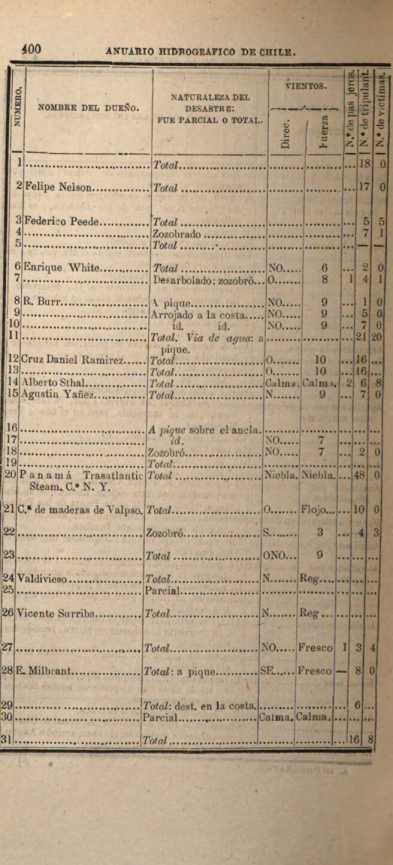 400 ANUARIO HIDROGRAFICO DE CHILE.
NUMERO. NOMBRE DEL DUEÑO. NATURALEZA DEL DESASTRE: FUE PARCIAL O TOTAL. VIENTOS. Direc. Fuerza N.º de pasajeros. N.º de tripulant. N.º de víctimas.
1 Total 18 0
2 Felipe Nelson Total 17 0
3 Federico Peede Total 5 5
4 Zozobrado 7 1
5 Total — —
6 Enrique White Total NO. 6 2 0
7 Desarbolado; zozobró O. 8 1 4 1
8 R. Burr A pique NO. 9 1 0
9 Arrojado a la costa NO. 9 5 0
10 id. id. NO. 9 7 0
11 Total. Via de agua: a 21 20
pique.
12 Cruz Daniel Ramirez Total O. 10 16
13 Total O. 10 16
14 Alberto Sthal Total Calma. Calma. 2 6 8
15 Agustin Yañez Total N. 9 7 0
16 A pique sobre el ancla.
17 id. NO. 7
18 Zozobró NO. 7 2 0
19 Total
20 Panamá Trasatlantic Total Niebla. Niebla. 48 0
Steam. C.ª N. Y.
21 C.ª de maderas de Valpso. Total O. Flojo 10 0
22 Zozobró S. 3 4 3
23 Total ONO. 9
24 Valdivieso Total N. Reg.
25 Parcial
26 Vicente Surribs Total N. Reg.
27 Total NO. Fresco 1 3 4
28 E. Milbrant Total: a pique SE. Fresco — 8 0
29 Total: dest. en la costa. 6
30 Parcial Calma. Calma.
31 Total 16 8